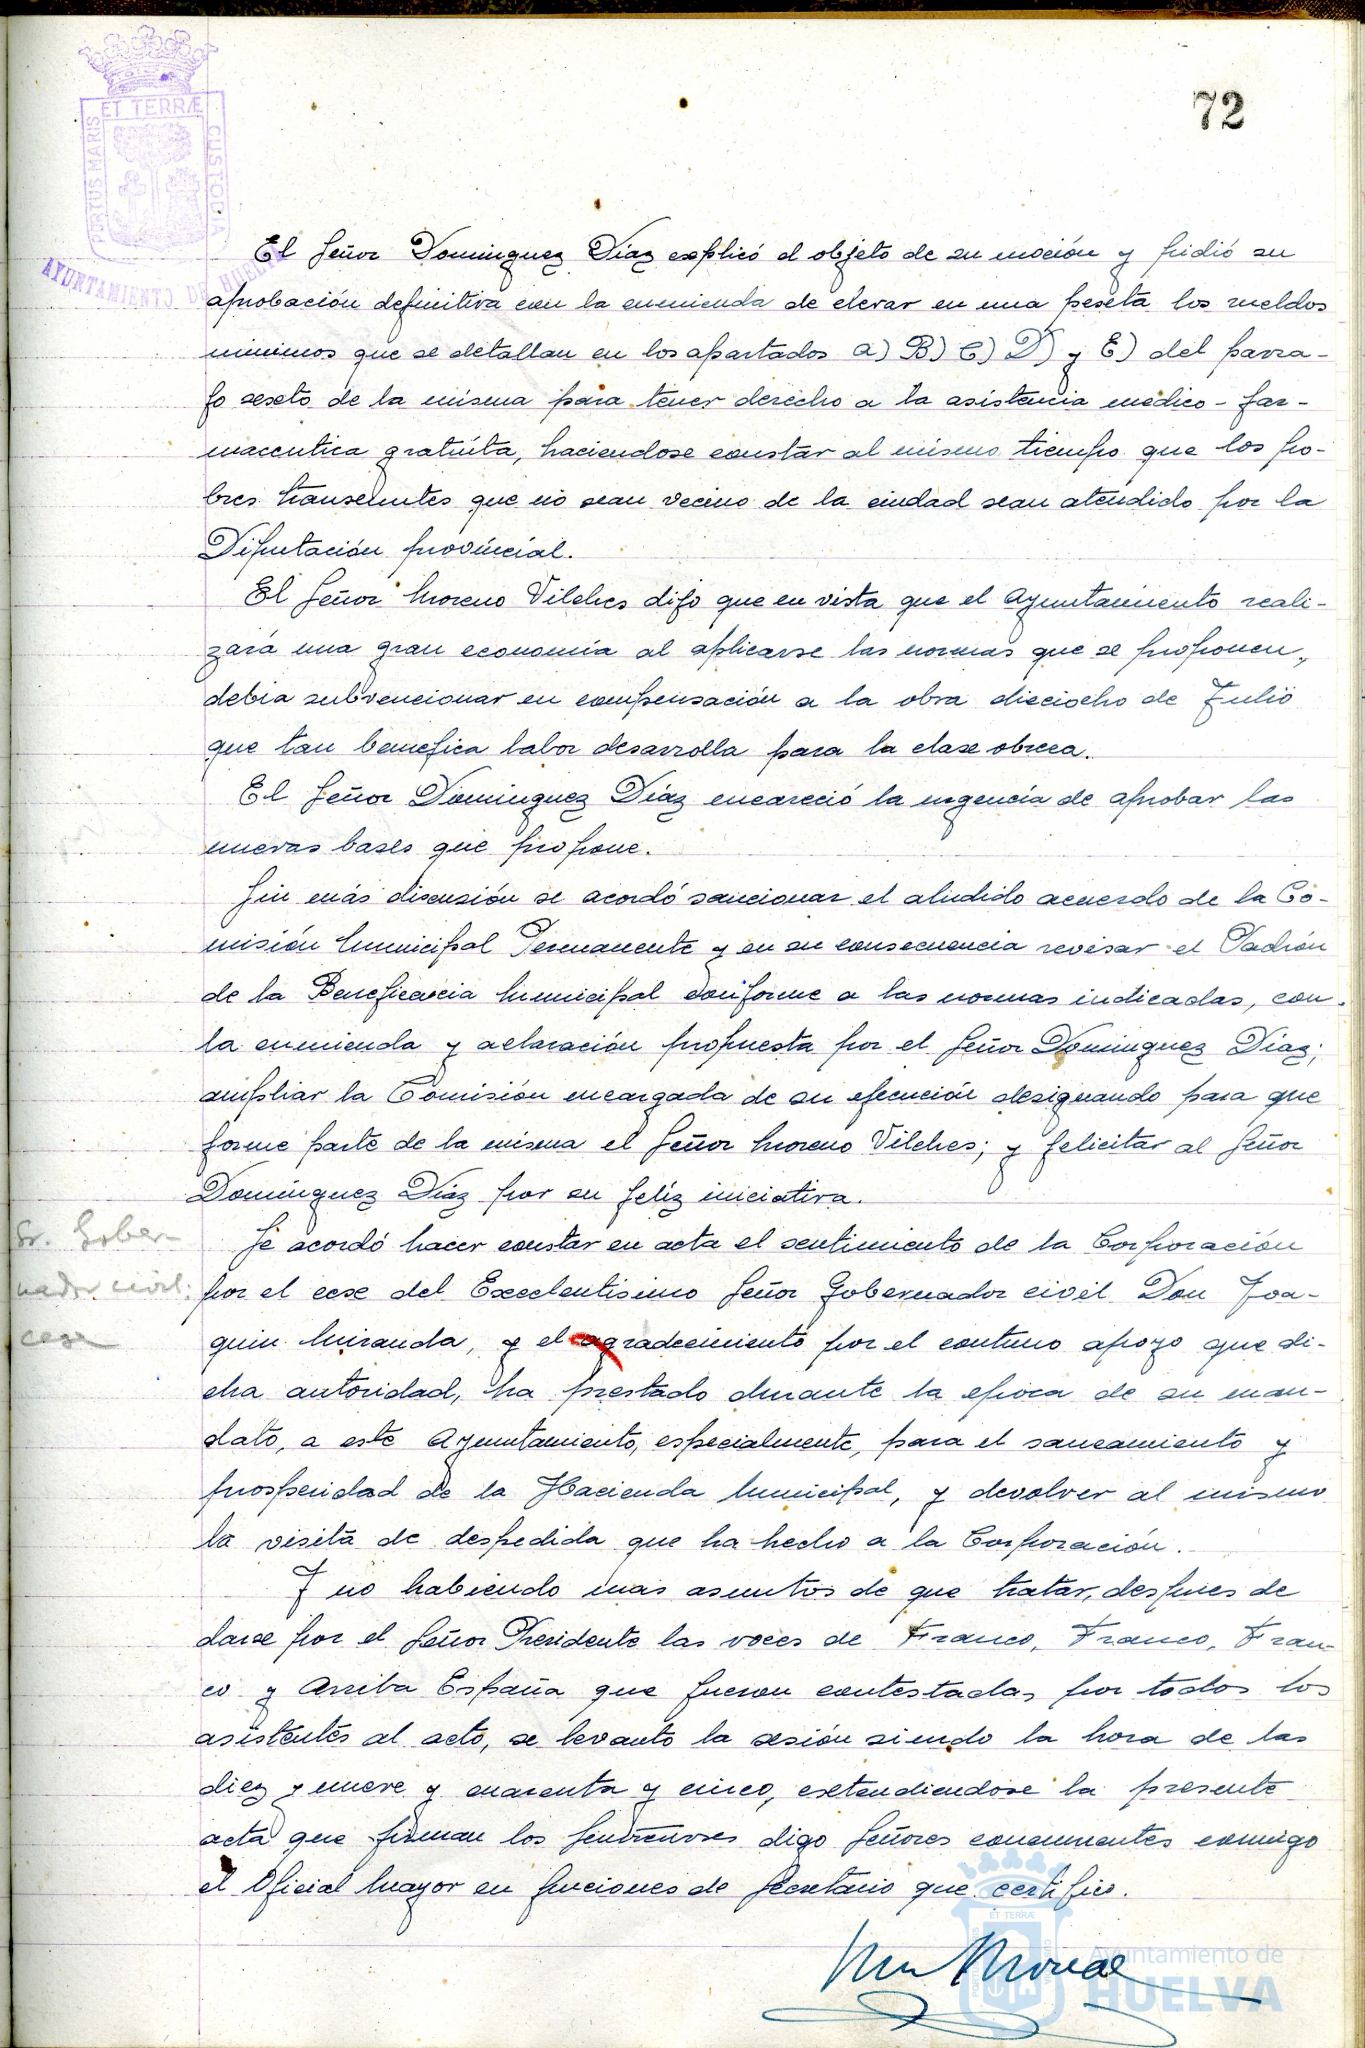 72
PORTUS MARIS ET TERRÆ CUSTODIA
AYUNTAMIENTO DE HUELVA
El Señor Dominguez Díaz explicó el objeto de su moción y pidió su
aprobación definitiva con la enmienda de elevar en una peseta los sueldos
minimos que se detallan en los apartados A) B) C) D) y E) del parra-
fo sexto de la misma para tener derecho a la asistencia medico-far-
maceutica gratuíta, haciendose constar al mismo tiempo que los po-
bres transeuntes que no sean vecino de la ciudad sean atendido por la
Diputación provincial.
El Señor Moreno Vilches dijo que en vista que el Ayuntamiento reali-
zará una gran economía al aplicarse las normas que se proponen,
debia subvencionar en compensación a la obra dieciocho de Julio
que tan benefica labor desarrolla para la clase obrera.
El Señor Dominguez Díaz encareció la urgencia de aprobar las
nuevas bases que propone.
Sin más discusión se acordó sancionar el aludido acuerdo de la Co-
misión Municipal Permanente y en su consecuencia revisar el Padrón
de la Beneficencia Municipal conforme a las normas indicadas, con
la enmienda y aclaración propuesta por el Señor Dominguez Diaz;
ampliar la Comisión encargada de su ejecución designando para que
forme parte de la misma el Señor Moreno Vilches; y felicitar al Señor
Domínguez Díaz por su felíz iniciativa.
Sr. Gober-
nador civil:
cese
Se acordó hacer constar en acta el sentimiento de la Corporación
por el cese del Excelentisimo Señor Gobernador civil Don Joa-
quin Miranda, y el agradecimiento por el contínuo apoyo que di-
cha autoridad, ha prestado durante la epoca de su man-
dato, a este Ayuntamiento, especialmente, para el saneamiento y
prosperidad de la Hacienda Municipal, y devolver al mismo
la visita de despedida que ha hecho a la Corporación.
Y no habiendo mas asuntos de que tratar, despues de
darse por el Señor Presidente las voces de Franco, Franco, Fran-
co y Arriba España que fueron contestadas por todos los
asistentes al acto, se levanto la sesión siendo la hora de las
diez y nueve y cuarenta y cinco, extendiendose la presente
acta que firman los digo Señores concurrentes conmigo
el Oficial Mayor en funciones de Secretario que certifico.
ET TERRÆ
Ayuntamiento de
HUELVA